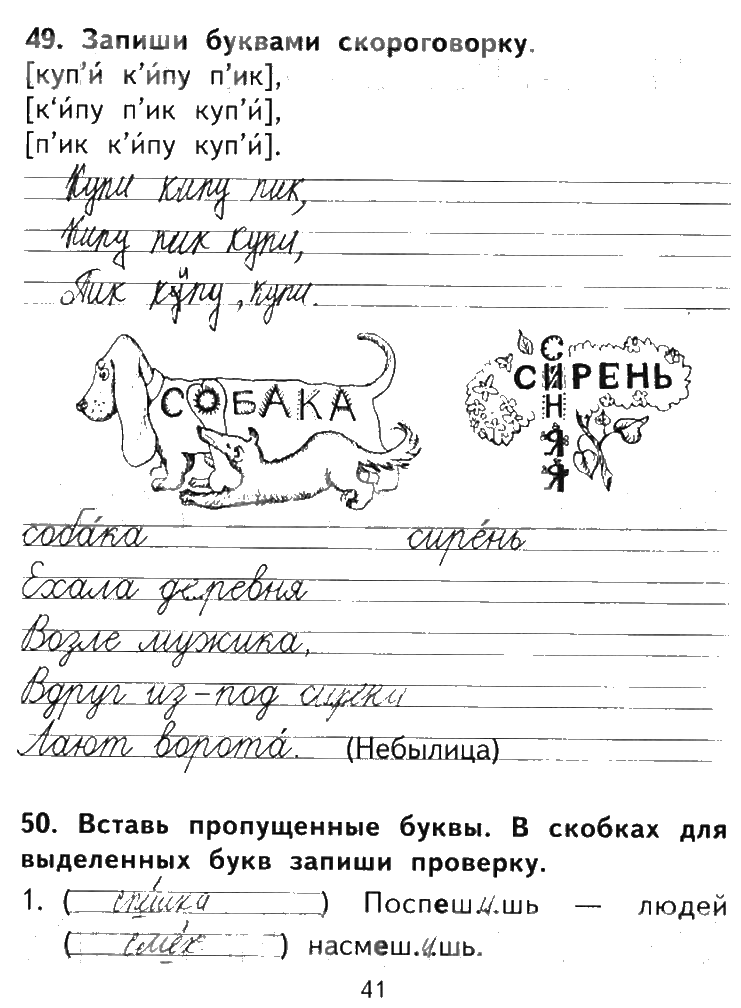 49. Запиши буквами скороговорку.
[куп’и́ к’и́пу п’ик],
[к‘и́пу п’ик куп’и́],
[п’ик к’и́пу куп’и́].
Купи кипу пик,
Кипу пик купи,
Пик кипу, купи.
СОБАКА
СИРЕНЬ
СИНЯЯ
соба́ка сире́нь
Ехала деревня
Возле мужика,
Вдруг из-под
Лают ворота́. (Небылица)
50. Вставь пропущенные буквы. В скобках для
выделенных букв запиши проверку.
1. ( спе́шка ) Поспеш.и.шь — людей
( сме́х ) насмеш.и.шь.
41